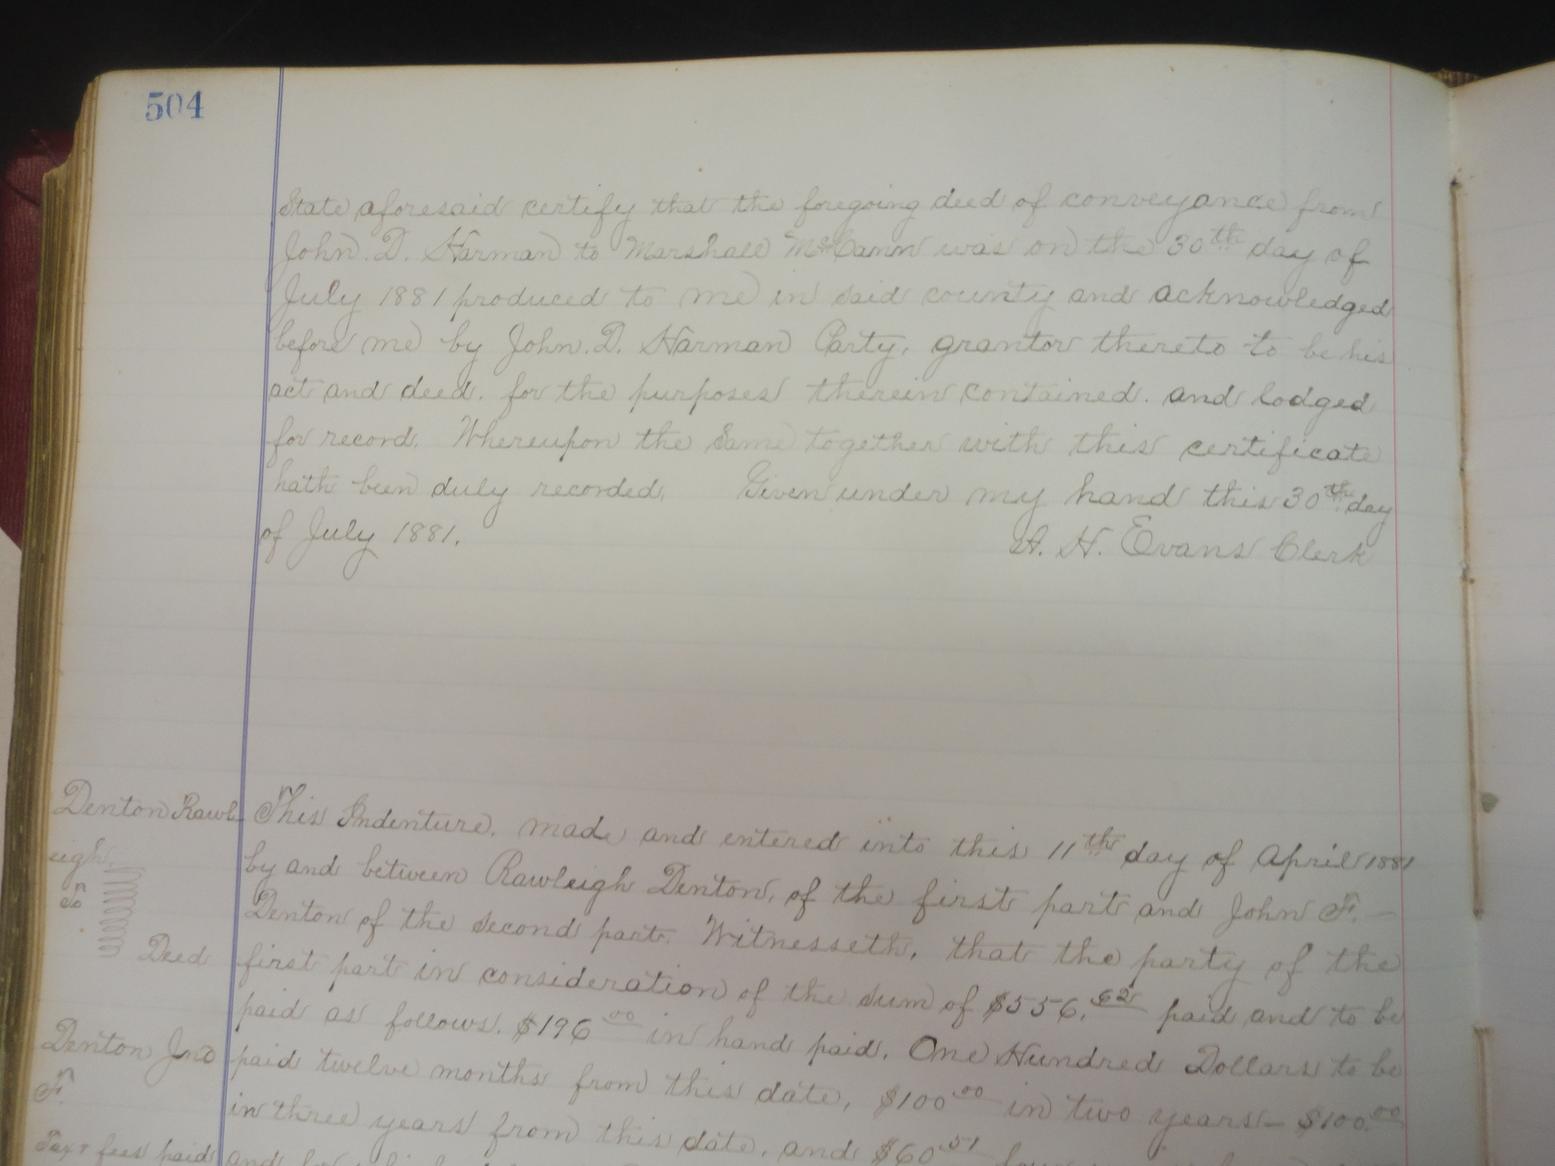 504
State aforesaid certify that the foregoing deed of conveyance from
John. D. Harman to Marshall McCann was on the 30th day of
July 1881 produced to me in said county and acknowledged
before me by John. D. Harman Party, grantor thereto to be his
act and deed. for the purposes therein contained. and lodged
for record. Whereupon the same together with this certificate
hath been duly recorded. Given under my hand this 30th day
of July 1881.
H. Evans Clerk
Denton Rawl
eigh
To
Deed
Denton Jno
F.
Tax & fees paid
This Indenture, made and entered into this 11th day of April 1881
by and between Rawleigh Denton, of the first part and John F. -
Denton of the second part. Witnesseth, that the party of the
first part in consideration of the sum of $556.62 paid and to be
paid as follows. $196 00 in hand paid. One Hundred Dollars to be
paid twelve months from this date, $100 00 in two years - $100.00
in three years from this date, and $60 51
and